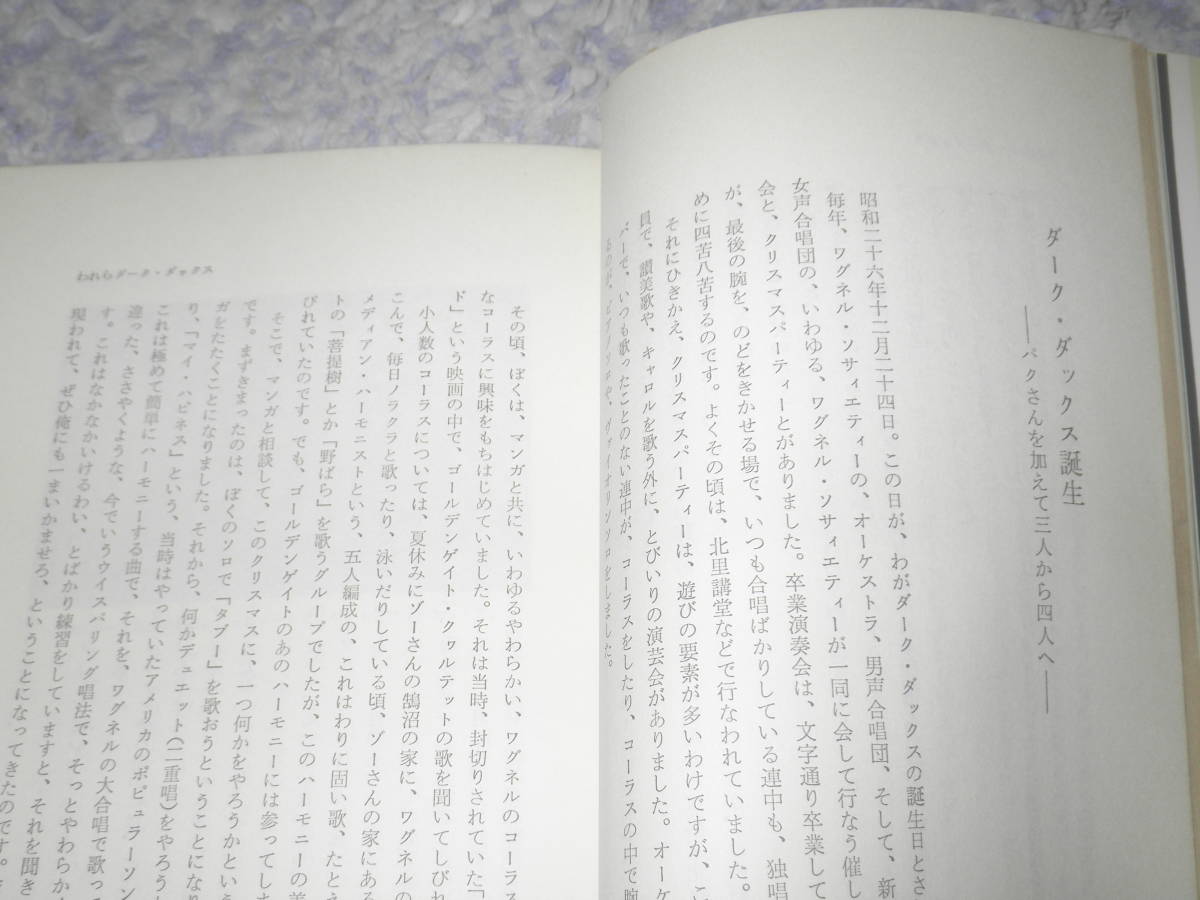 ダーク・ダックス誕生
――パクさんを加えて三人から四人へ――
昭和二十六年十二月二十四日。この日が、わがダーク・ダックスの誕生日とさ
毎年、ワグネル・ソサィエティーの、オーケストラ、男声合唱団、そして、新
女声合唱団の、いわゆる、ワグネル・ソサィエティーが一同に会して行なう催し
会と、クリスマスパーティーとがありました。卒業演奏会は、文字通り卒業して
が、最後の腕を、のどをきかせる場で、いつも合唱ばかりしている連中も、独唱
めに四苦八苦するのです。よくその頃は、北里講堂などで行なわれていました。
それにひきかえ、クリスマスパーティーは、遊びの要素が多いわけですが、こ
員で、讃美歌や、キャロルを歌う外に、とびいりの演芸会がありました。オーケ
バーで、いつも歌ったことのない連中が、コーラスをしたり、コーラスの中で腕
るのが、ピアノソロや、ヴァイオリンソロをしました。
われらダーク・ダックス
その頃、ぼくは、マンガと共に、いわゆるやわらかい、ワグネルのコーラス
なコーラスに興味をもちはじめていました。それは当時、封切りされていた「
ド」という映画の中で、ゴールデンゲイト・クヮルテットの歌を聞いてしびれ
小人数のコーラスについては、夏休みにゾーさんの鵠沼の家に、ワグネルの
こんで、毎日ノラクラと歌ったり、泳いだりしている頃、ゾーさんの家にある
メディアン・ハーモニストという、五人編成の、これはわりに固い歌、たとえ
トの「菩提樹」とか「野ばら」を歌うグループでしたが、このハーモニーの美
びれていたのです。でも、ゴールデンゲイトのあのハーモニーには参ってしま
そこで、マンガと相談して、このクリスマスに、一つ何かをやろうかという
です。まずきまったのは、ぼくのソロで「タブー」を歌おうということになり
ガをたたくことになりました。それから、何かデュエット(二重唱)をやろう
り、「マイ・ハピネス」という、当時はやっていたアメリカのポピュラーソン
これは極めて簡単にハーモニーする曲で、それを、ワグネルの大合唱で歌っ
違った、ささやくような、今でいうウイスパリング唱法で、そっとやわらか
す。これはなかなかいけるわい、とばかり練習をしていますと、それを聞き
現われて、ぜひ俺にも一まいかませろ、ということになってきたのです。